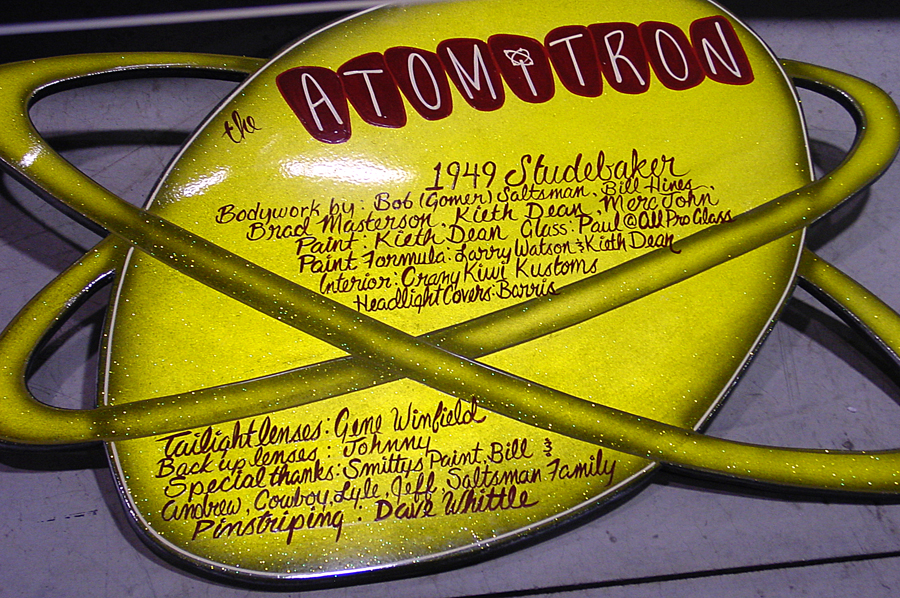 the ATOMITRON
1949 Studebaker
Bodywork by: Bob (Gomer) Saltsman, Bill Hines,
Brad Masterson, Kieth Dean, Merc John
Paint: Kieth Dean Glass: Paul @ All Pro Glass
Paint Formula: Larry Watson & Kieth Dean
Interior: Crazy Kiwi Kustoms
Headlight Covers: Barris
Taillight lenses: Gene Winfield
Back up lenses: Johnny
Special thanks: Smittys Paint, Bill &
Andrew, Cowboy, Lyle, Jeff, Saltsman Family
Pinstriping: Dave Whittle